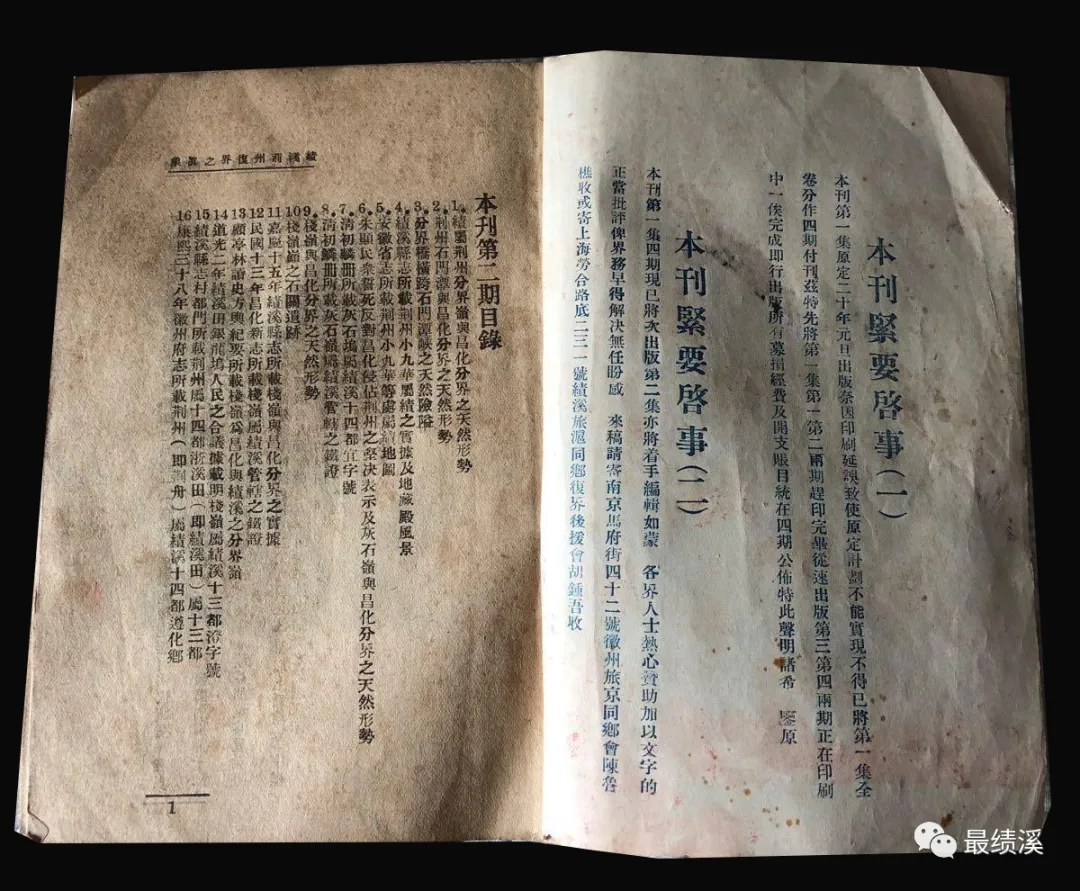 本刊緊要啓事(一)
本刊第一集原定二十年元旦出版奈因印刷延誤致使原定計劃不能實現不得已將第一集全
卷分作四期付刊茲特先將第一集第一第二兩期趕印完畢從速出版第三第四兩期正在印刷
中一俟完成即行出版所有募捐經費及開支賬目統在四期公佈特此聲明諸希 鑒原
本刊緊要啓事(二)
本刊第一集四期現已將次出版第二集亦將着手編輯如蒙 各界人士熱心贊助加以文字的
正當批評俾界務早得解決無任盼感 來稿請寄南京馬府街四十二號徽州旅京同鄉會陳魯
樵收或寄上海勞合路底二三一號績溪旅滬同鄉復界後援會胡鍾吾收
績溪荊州復界之眞象
本刊第二期目錄
1.績屬荊州分界嶺與昌化分界之天然形勢
2.荊州石門潭與昌化分界之天然形勢
3.分界橋橫跨石門潭峽之天然險隘
4.績溪縣志所載荊州小九華屬績之實據及地藏殿風景
5.安徽省志所載荊州小九華等處屬績地圖
6.朱顯民衆誓死反對昌化侵佔荊州之堅决表示及灰石嶺與昌化分界之天然形勢
7.清初鱗冊所載灰石塢屬績溪十四都宜字號
8.清初鱗冊所載灰石嶺屬績溪管轄之鐵證
9.棧嶺與昌化分界之天然形勢
10棧嶺之石關遺跡
11嘉慶十五年績溪縣志所載棧嶺與昌化分界之實據
12民國十三年昌化新志所載棧嶺屬績溪管轄之鐵證
13顧亭林讀史方輿紀要所載棧嶺爲昌化與績溪之分界嶺
14道光二年績溪田銀龍塢人民之合議據載明棧嶺屬績溪十三都潛字號
15績溪縣志村都門所載荊州屬十四都浙溪田(即績溪田)屬十三都
16康熙三十八年徽州府志所載荊州(即荊舟)屬績溪十四都遵化鄉
1
最绩溪